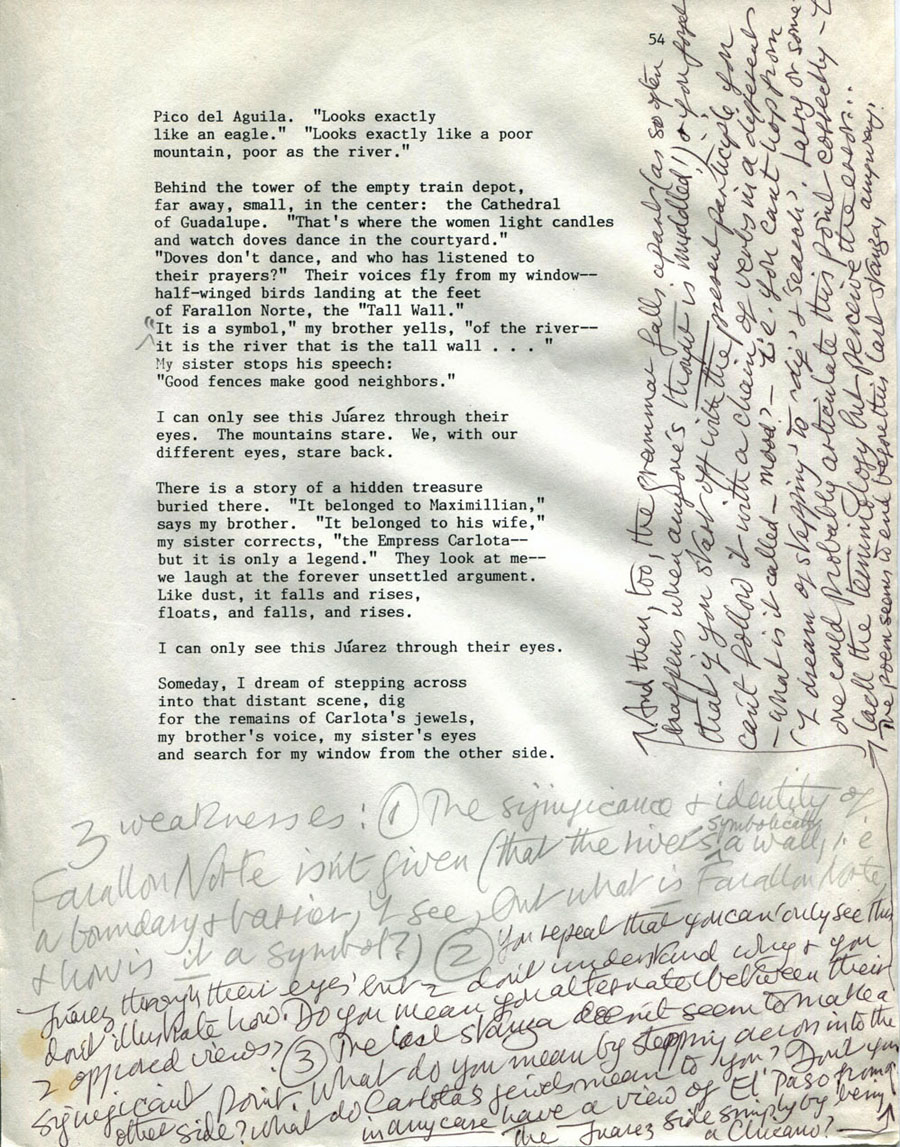 54
Pico del Aguila.  "Looks exactly
like an eagle."  "Looks exactly like a poor
mountain, poor as the river."
Behind the tower of the empty train depot,
far away, small, in the center:  the Cathedral
of Guadalupe.  "That's where the women light candles
and watch doves dance in the courtyard."
"Doves don't dance, and who has listened to
their prayers?"  Their voices fly from my window--
half-winged birds landing at the feet
of Farallon Norte, the "Tall Wall."
"It is a symbol," my brother yells, "of the river--
it is the river that is the tall wall . . . "
My sister stops his speech:
"Good fences make good neighbors."
I can only see this Júarez through their
eyes.  The mountains stare.  We, with our
different eyes, stare back.
There is a story of a hidden treasure
buried there.  "It belonged to Maximillian,"
says my brother.  "It belonged to his wife,"
my sister corrects, "the Empress Carlota--
but it is only a legend."  They look at me--
we laugh at the forever unsettled argument.
Like dust, it falls and rises,
floats, and falls, and rises.
I can only see this Júarez through their eyes.
Someday, I dream of stepping across
into that distant scene, dig
for the remains of Carlota's jewels,
my brother's voice, my sister's eyes
and search for my window from the other side.
3 weaknesses: ① The significance & identity of
Farallon Norte isn't given (that the river's symbolically a wall, i.e
a boundary & barrier, I see, but what is Farallon Norte,
& how is it a symbol?) ② You repeat that you can 'only see this
Júarez through their eyes' but I don't understand why & you
don't illustrate how. Do you mean you alternate between their
2 opposed views? ③ The last stanza doesn't seem to make a
significant point. What do you mean by stepping across into the
other side? What do Carlota's jewels mean to you? Don't you
in any case have a view of El Paso from
the Juarez side simply by being
a Chicano?
And then, too, the grammar falls apart (as so often
happens when anyone's thought is muddled!) & you forget
that if you start off with the present participle you
can't follow it with a chain of verbs in a different
- what is it called - mood? - i.e. you can't hop from
'I dream of stepping' to 'dig' & 'search'. Larry or some
one could probably articulate this point correctly - I
lack the terminology but perceive the error...
The poem seems to end before this last stanza, anyway.